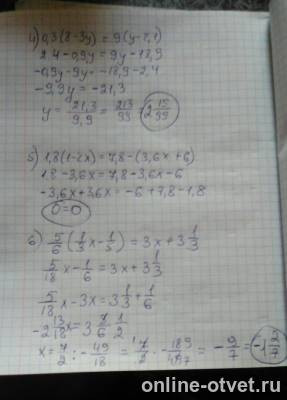 4) 0,3(8-3y)=9(y-2,1)
2,4-0,9y=9y-18,9
-0,9y-9y=-18,9-2,4
-9,9y=-21,3
y=21,3/9,9=213/99=2 15/99
5) 1,8(1-2x)=7,8-(3,6x+6)
1,8-3,6x=7,8-3,6x-6
-3,6x+3,6x=-6+7,8-1,8
0=0
6) 5/6(1/3x-1/5)=3x+3 1/3
5/18x-1/6=3x+3 1/3
5/18x-3x=3 1/3+1/6
-2 13/18x=3
x=7/2:-49/18= -9/7=-1 2/7
online-otvet.ru